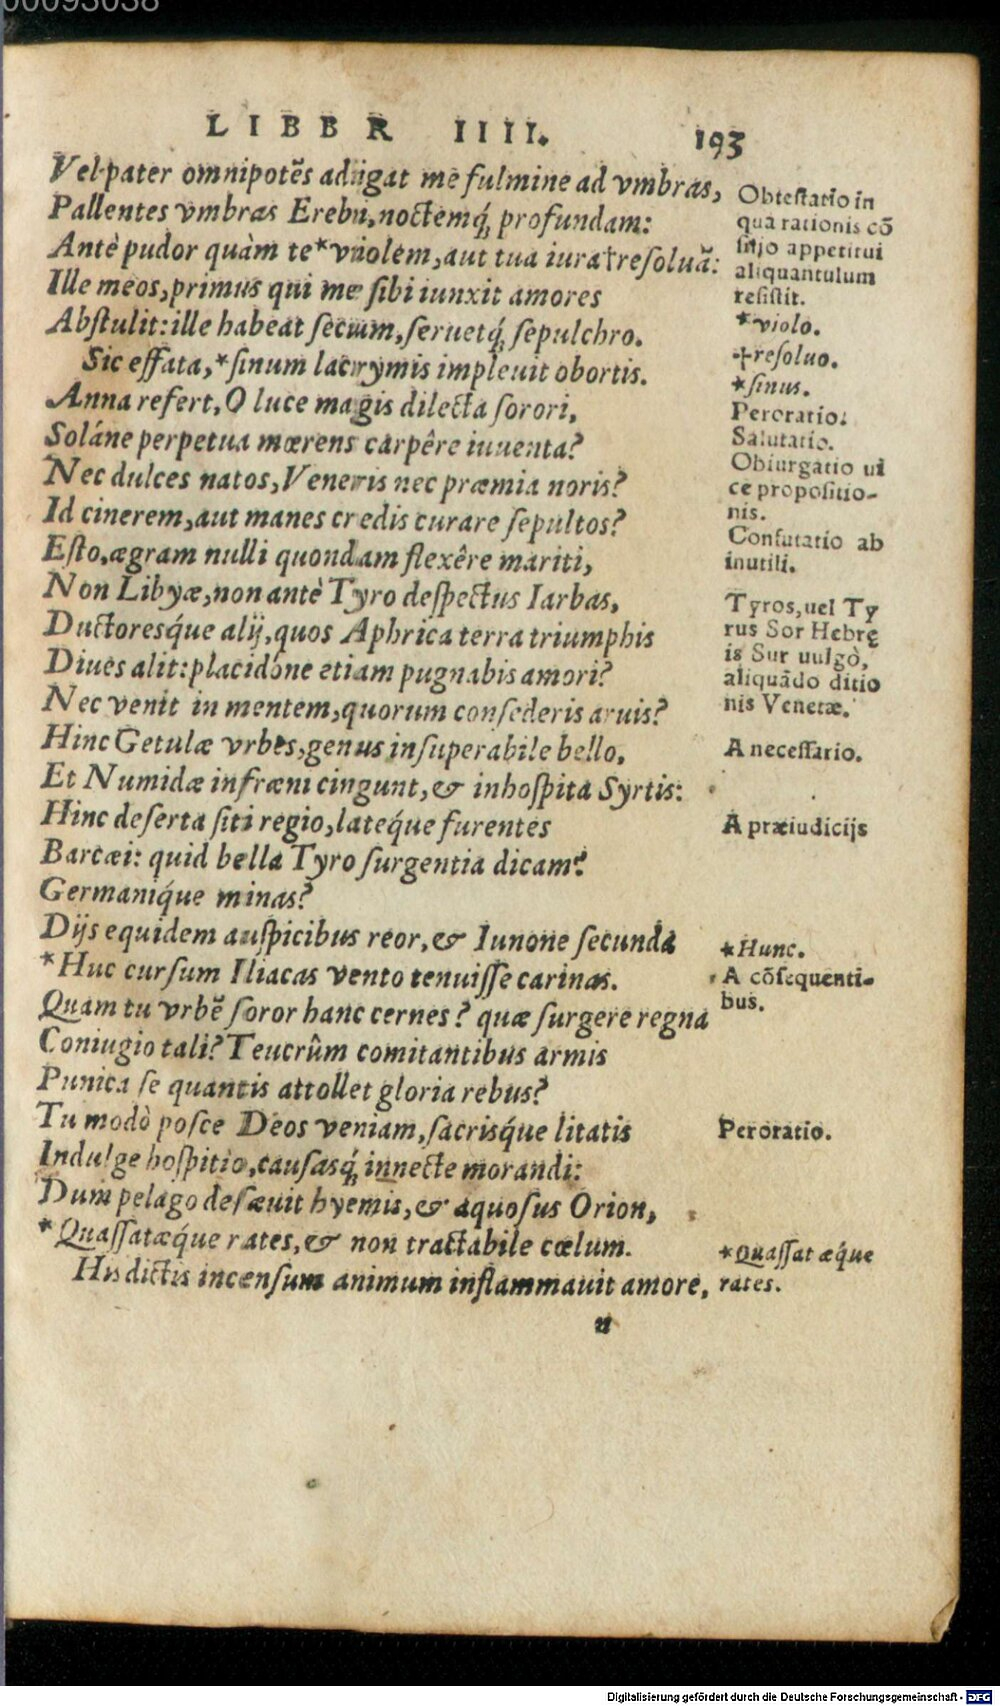 00093038
LIBER IIII. 193
Vel pater omnipotẽs adigat me fulmine ad vmbras,
Pallentes vmbras Erebi, noctemq́; profundam:
Antè pudor quàm te*violem, aut tua iura†resoluã:
Ille meos, primus qui me sibi iunxit amores
Abstulit: ille habeat secum, seruetq́; sepulchro.
Sic effata,*sinum lacrymis impleuit obortis.
Anna refert, O luce magis dilecta sorori,
Soláne perpetua mœrens carpêre iuuenta?
Nec dulces natos, Veneris nec præmia noris?
Id cinerem, aut manes credis curare sepultos?
Esto, ægram nulli quondam flexêre mariti,
Non Libyæ, non antè Tyro despectus Iarbas,
Ductoresq́ue alij, quos Aphrica terra triumphis
Diues alit: placidóne etiam pugnabis amori?
Nec venit in mentem, quorum consederis aruis?
Hinc Getulæ vrbes, genus insuperabile bello,
Et Numidæ infræni cingunt, & inhospita Syrtis:
Hinc deserta siti regio, lateq́ue furentes
Barcæi: quid bella Tyro surgentia dicam?
Germaniq́ue minas?
Dijs equidem auspicibus reor, & Iunone secunda
*Huc cursum Iliacas vento tenuisse carinas.
Quam tu vrbẽ soror hanc cernes? quæ surgere regna
Coniugio tali? Teucrûm comitantibus armis
Punica se quantis attollet gloria rebus?
Tu modò posce Deos veniam, sacrisq́ue litatis
Indulge hospitio, causasq́; innecte morandi:
Dum pelago desæuit hyemis, & aquosus Orion,
*Quassatæq́ue rates, & non tractabile cœlum.
His dictis incensum animum inflammauit amore,
n
Obtestatio in
qua rationis cõ
silio appetitui
aliquantulum
resistit.
*violo.
†resoluo.
*sinus.
Peroratio.
Salutatio.
Obiurgatio ui
ce propositio-
nis.
Confutatio ab
inutili.
Tyros, uel Ty
rus Sor Hebrę
is Sur uulgò,
aliquãdo ditio
nis Venetæ.
A necessario.
A præiudicijs
*Hunc.
A cõsequenti-
bus.
Peroratio.
*Quassatæq́ue
rates.
Digitalisierung gefördert durch die Deutsche Forschungsgemeinschaft - DFG